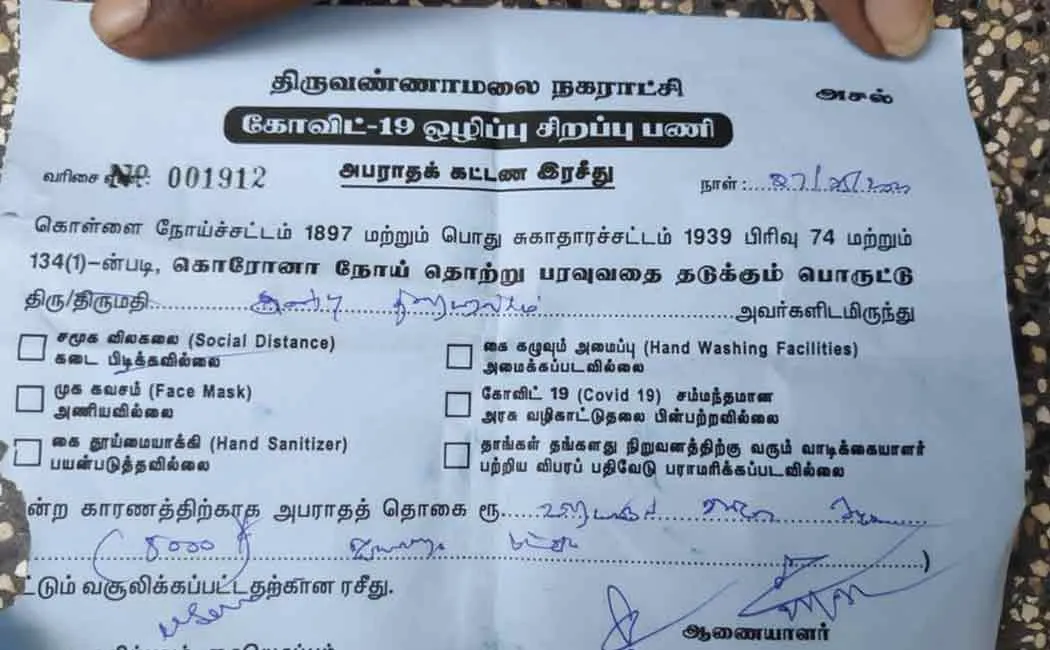 திருவண்ணாமலை நகராட்சி
அசல்
கோவிட்-19 ஒழிப்பு சிறப்பு பணி
அபராதக் கட்டண இரசீது
வரிசை எண்: No 001912
நாள் :
கொள்ளை நோய்ச்சட்டம் 1897 மற்றும் பொது சுகாதாரச்சட்டம் 1939 பிரிவு 74 மற்றும்
134(1)-ன்படி, கொரோனா நோய் தொற்று பரவுவதை தடுக்கும் பொருட்டு
திரு/திருமதி அவர்களிடமிருந்து
சமூக விலகலை (Social Distance)
கடை பிடிக்கவில்லை
முக கவசம் (Face Mask)
அணியவில்லை
கை தூய்மையாக்கி (Hand Sanitizer)
பயன்படுத்தவில்லை
கை கழுவும் அமைப்பு (Hand Washing Facilities)
அமைக்கப்படவில்லை
கோவிட் 19 (Covid 19) சம்மந்தமான
அரசு வழிகாட்டுதலை பின்பற்றவில்லை
தாங்கள் தங்களது நிறுவனத்திற்கு வரும் வாடிக்கையாளர்
பற்றிய விபரப் பதிவேடு பராமரிக்கப்படவில்லை
ன்ற காரணத்திற்காக அபராதத் தொகை ரூ.
(5000 )
ட்டும் வசூலிக்கப்பட்டதற்கான ரசீது.
ஆணையாளர்